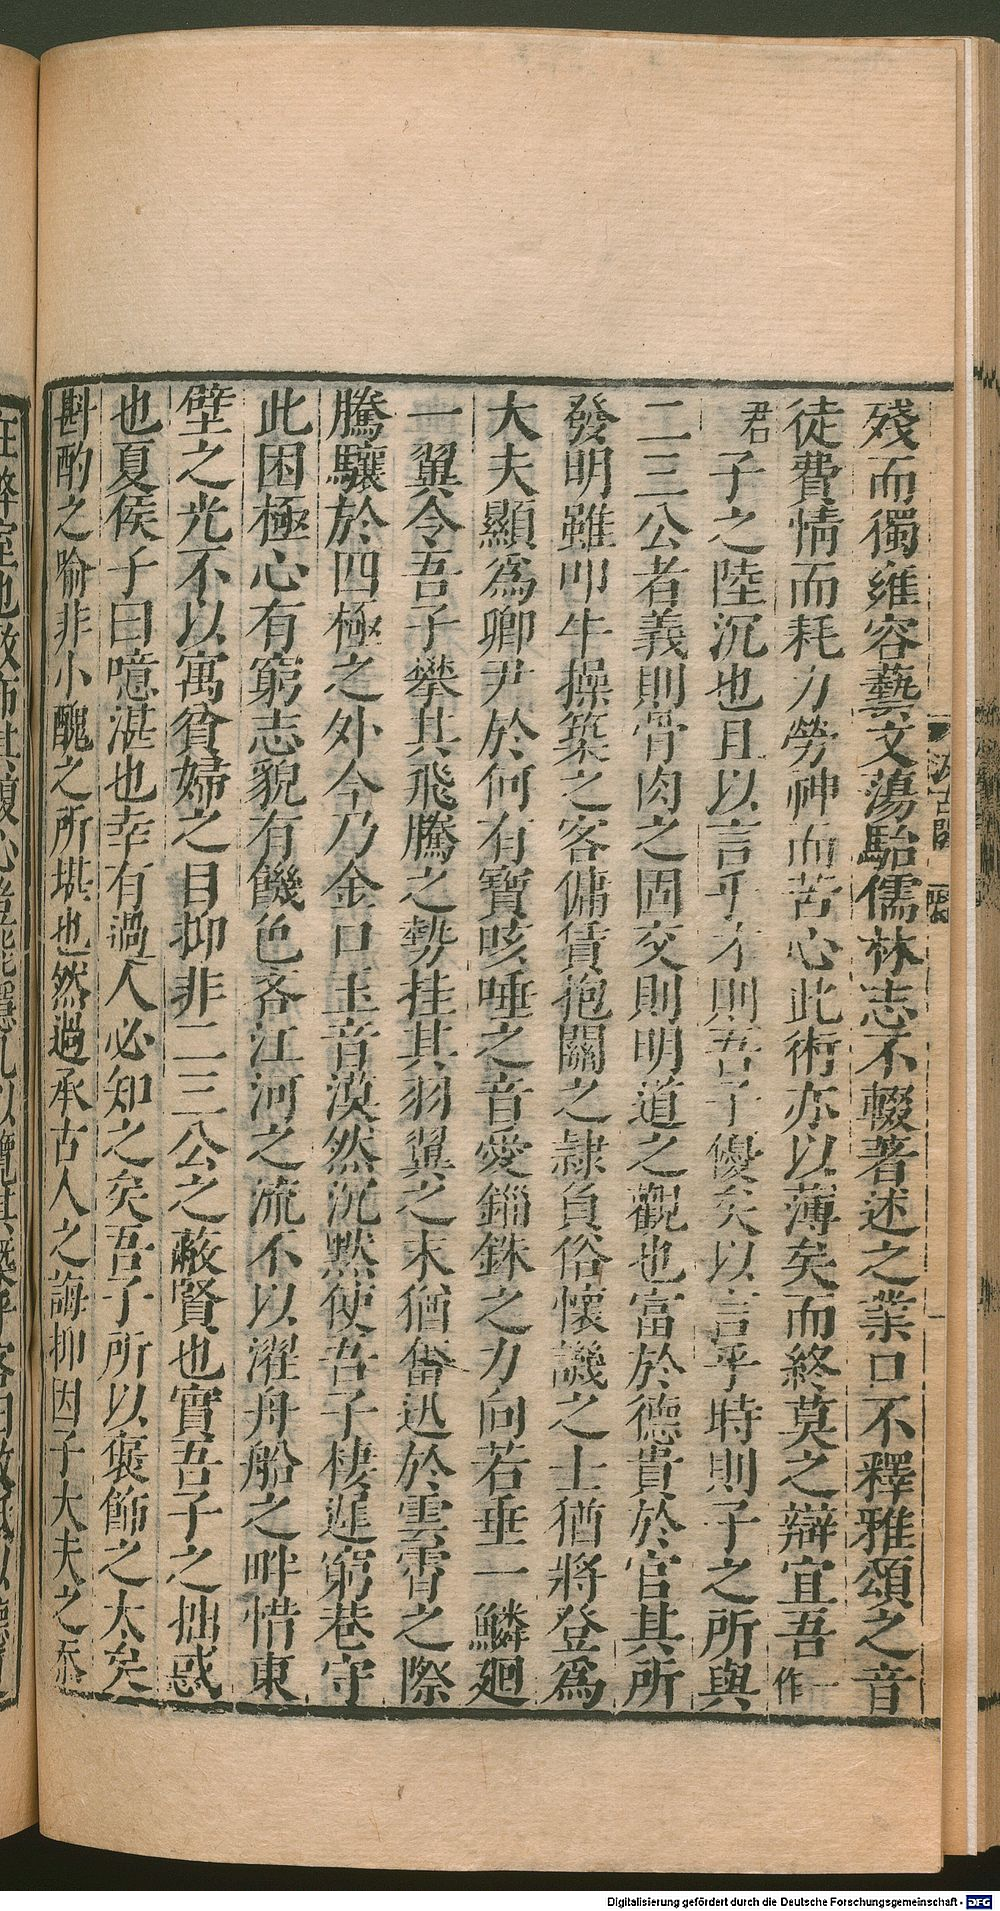 殘而獨雍容藝文蕩駘儒林志不輟著述之業口不釋雅頌之音
徒費情而耗力勞神而苦心此術亦以薄矣而終莫之辯宜吾一作
君子之陸沉也且以言乎才則吾子優矣以言乎時則子之所與
二三公者義則骨肉之固交則明道之觀也富於德貴於官其所
發明雖叩牛操築之客傭賃抱關之隷負俗懷譏之士猶將登爲
大夫顯爲卿尹於何有寶咳唾之音愛錙銖之力向若垂一鱗廻
一翼令吾子攀其飛騰之勢挂其羽翼之末猶奮迅於雲霄之際
騰驤於四極之外今乃金口玉音漠然沉黙使吾子棲遲窮巷守
此困極心有窮志貌有饑色吝江河之流不以濯舟船之畔惜東
壁之光不以寓貧婦之目抑非二三公之蔽賢也實吾子之拙惑
也夏侯子曰噫湛也幸有過人必知之矣吾子所以褒飾之太矣
斟酌之喻非小醜之所堪也然過承古人之誨抑因子大夫之忝
Digitalisierung gefördert durch die Deutsche Forschungsgemeinschaft - DFG